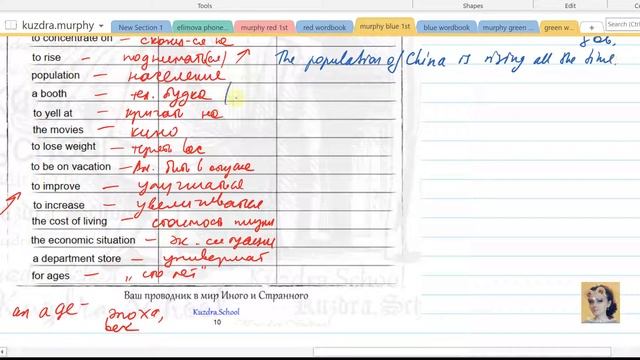 Shapes Pens
kuzdra.murphy New Section 1 efimova phone... murphy red 1st red wordbook murphy blue 1st blue wordbook murphy green ... green w...
to concentrate on – сконц-ся на
to rise – поднимать(ся) The population of China is rising all the time.
population – население
a booth – тел. будка (
to yell at – кричать на
the movies – кино
to lose weight – терять вес
to be on vacation – Ам. быть в отпуске
to improve – улучшаться
to increase – увеличиваться
the cost of living – стоимость жизни
the economic situation – эк. ситуация
a department store – универмаг
for ages – „сто лет"
Ваш проводник в мир Иного и Странного
an age – эпоха,
век
Kuzdra.School
10